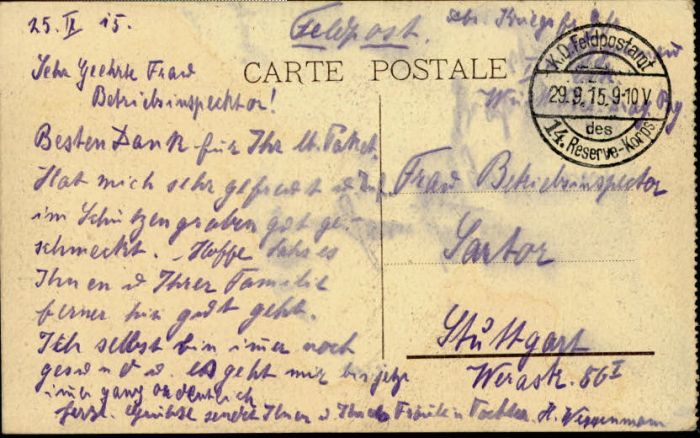 25. IX 15.
Feldpost.
CARTE POSTALE
K.D. Feldpostamt
29.9.15.9-10V
des
14. Reserve-Korps
Sehr Geehrte Frau
Betriebsinspektor!
Besten Dank für Ihr lb. Paket.
Hat mich sehr gefreut u
im Schützengraben gut ge-
schmeckt. Hoffe dass es
Ihnen u Ihrer Familie
ferner hin gut geht.
Ich selbst bin immer noch
gesund u. es geht mir bis jetzt
immer ganz ordentlich
herzl. Grüsse sendet Ihnen u. Fräulein Tochter
Frau Betriebsinspector
Sartor
Stuttgart
Werastr. 56 I